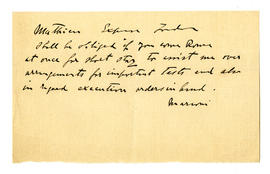 Mathieu Expense London
Shall be obliged if you come Rome
at once for short stay to assist me over
arrangements for important tests and also
in regard execution orders in hand.
Marconi